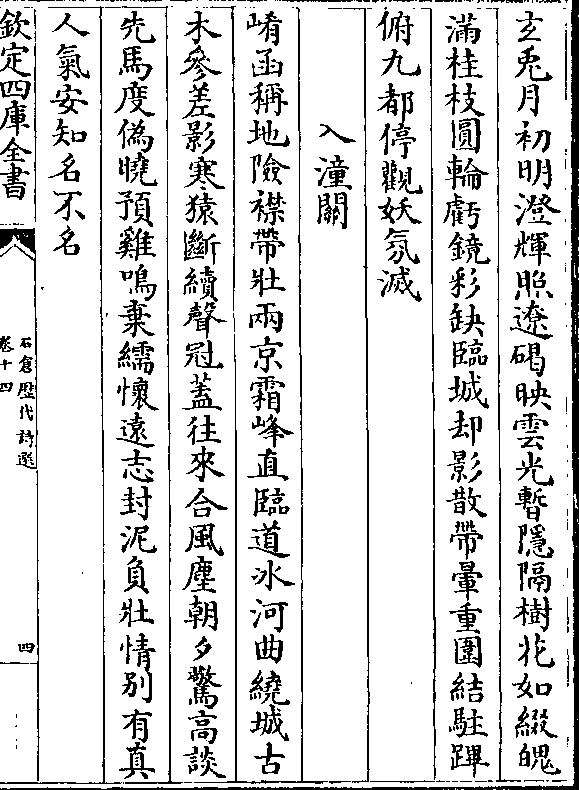 玄兎月初明澄輝照遼碣映雲光暫隱隔樹花如綴魄
滿桂枝圓輪虧鏡彩缺臨城却影散帶暈重圍結駐蹕
俯九都停觀妖氛滅
入潼關
崤函稱地險襟帶壯兩京霜峰直臨道冰河曲繞城古
木參差影寒猿斷續聲冠蓋往來合風塵朝夕驚高談
先馬度偽曉預雞鳴棄繻懷遠志封泥負壯情別有真
人氣安知名不名
欽定四庫全書
石倉歷代詩選
卷十四
四